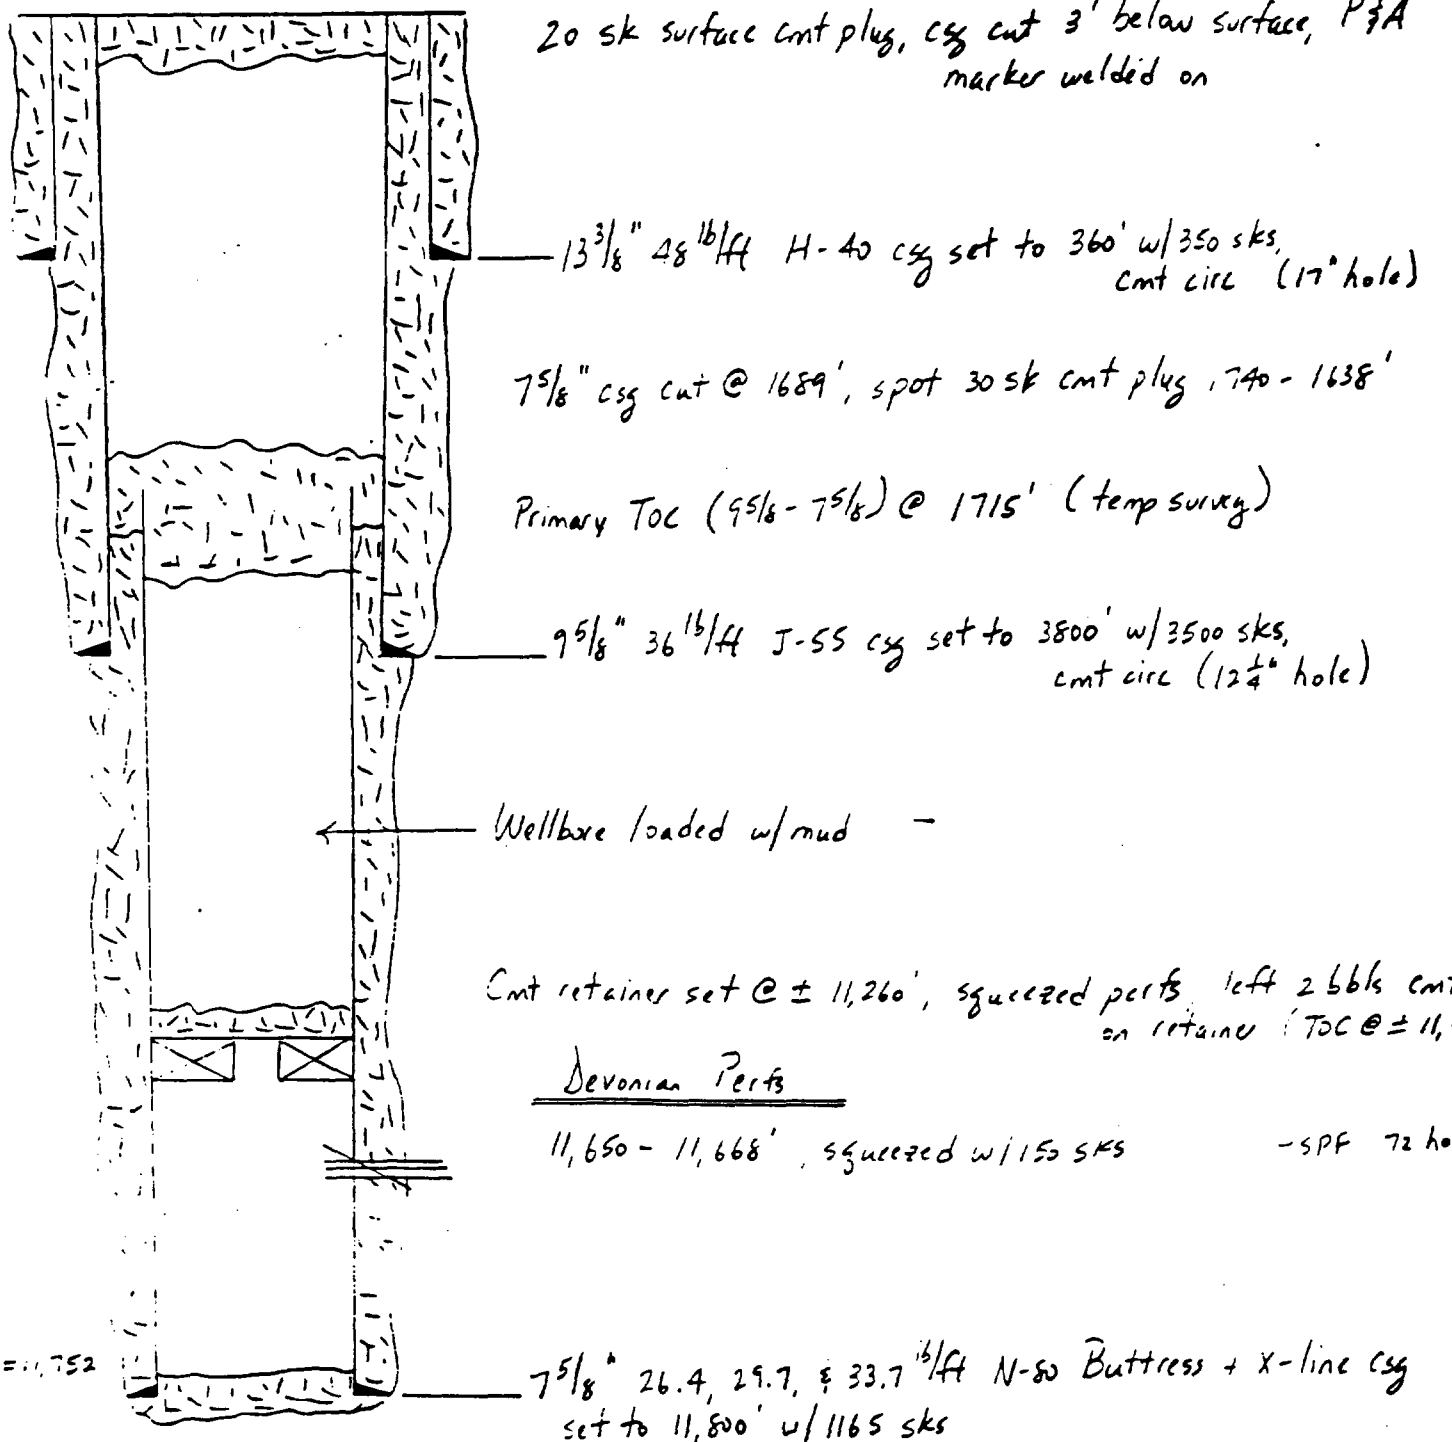 20 sk surface cmt plug, csg cut 3' below surface, P&A
marker welded on
13 3/8" 48 lb/ft H-40 csg set to 360' w/350 sks,
cmt circ (17" hole)
7 5/8" csg cut @ 1689', spot 30 sk cmt plug 1740 - 1638'
Primary TOC (9 5/8 - 7 5/8) @ 1715' (temp survey)
9 5/8" 36 lb/ft J-55 csg set to 3800' w/3500 sks,
cmt circ (12 1/4" hole)
Wellbore loaded w/ mud -
Cmt retainer set @ ± 11,260', squeezed perfs, left 2 bbls cmt
on retainer (TOC @ ± 11,
Devonian Perfs
11,650 - 11,668', squeezed w/150 sks -SPF 72 ho
= 11,752
7 5/8" 26.4, 29.7, & 33.7 lb/ft N-80 Buttress + X-line csg
set to 11,800' w/1165 sks